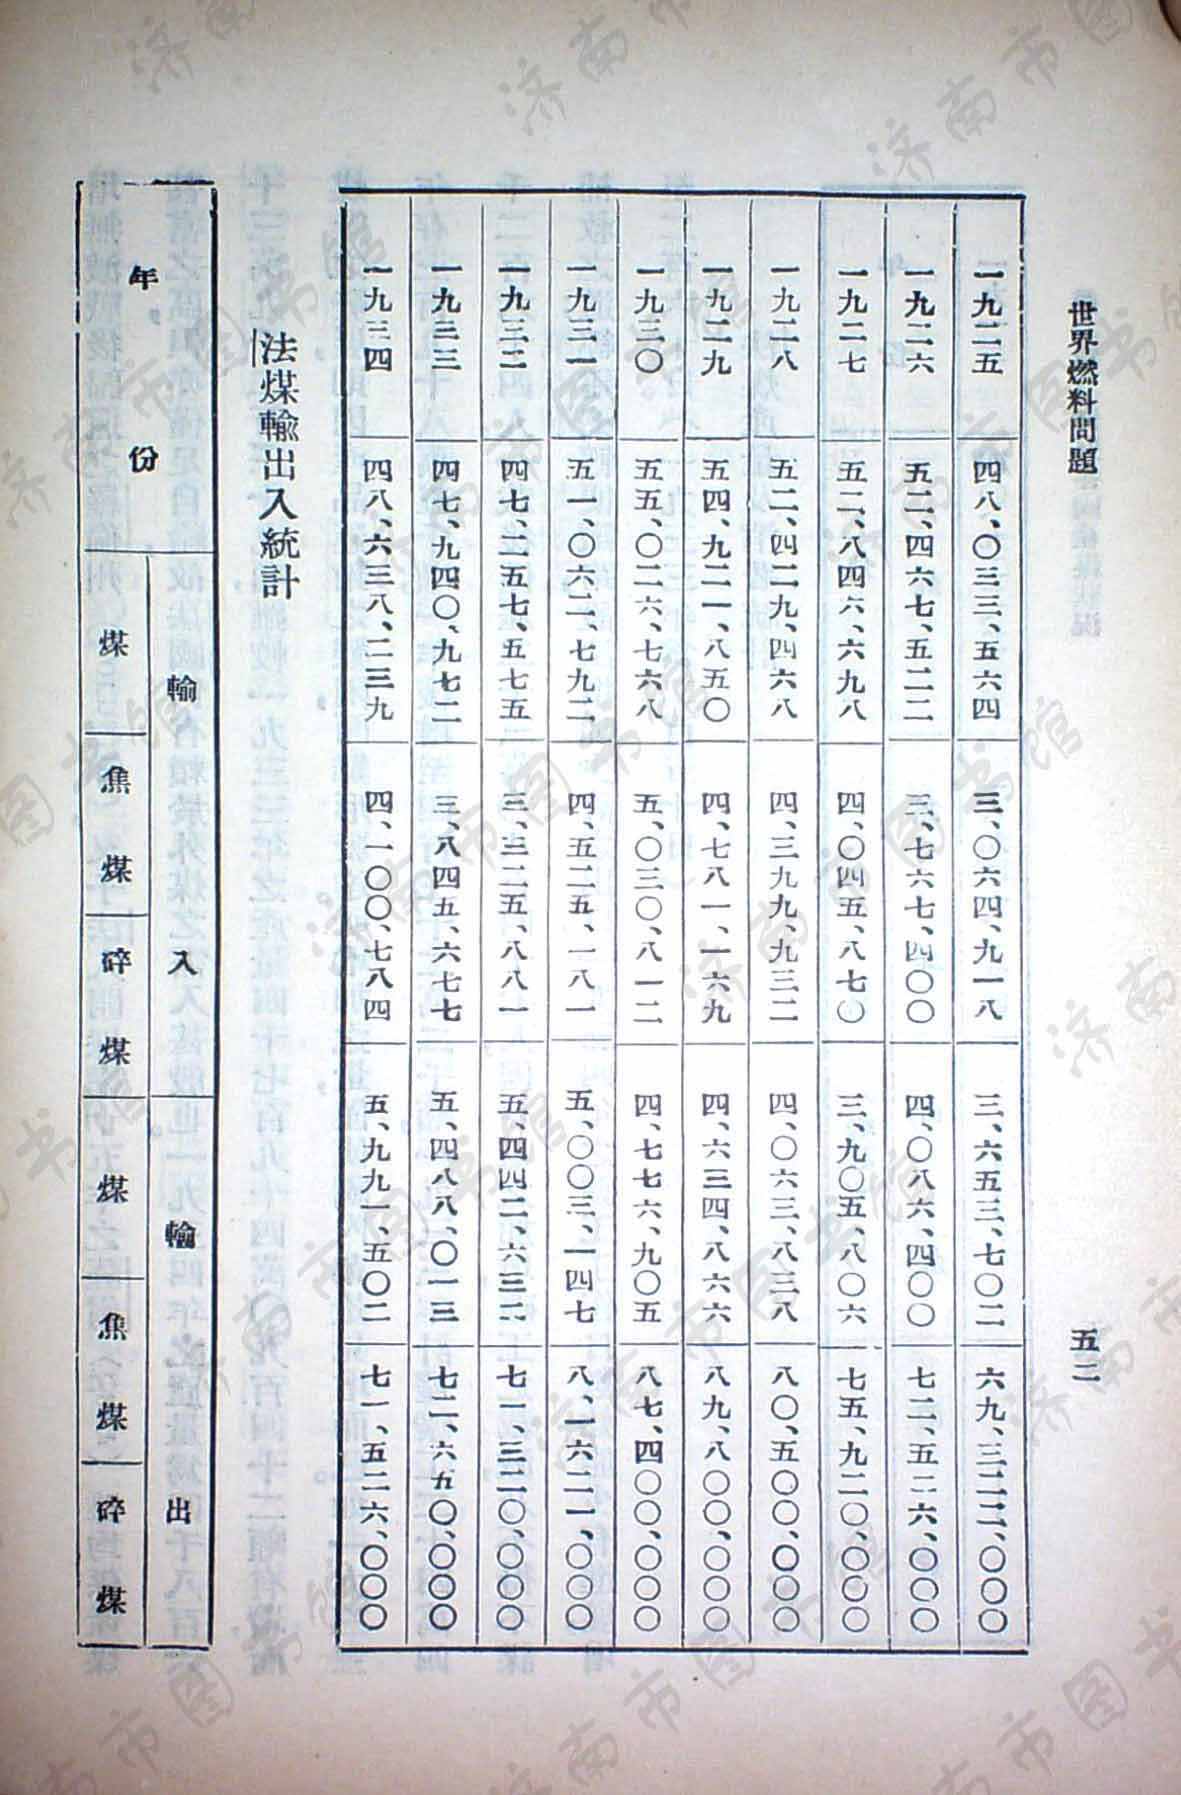 世界燃料問題
五二
一九二五 四八、〇三三、五六四 三、〇六四、九一八 三、六五三、七〇二 六九、三二二、〇〇〇
一九二六 五二、四六七、五二二 三、七六七、四〇〇 四、〇八六、四〇〇 七二、五二六、〇〇〇
一九二七 五二、八四六、六九八 四、〇四五、八七〇 三、九〇五、八〇六 七五、九二〇、〇〇〇
一九二八 五二、四二九、四六八 四、三九九、九三二 四、〇六三、八三八 八〇、五〇〇、〇〇〇
一九二九 五四、九二一、八五〇 四、七八一、一六九 四、六三四、八六六 八九、八〇〇、〇〇〇
一九三〇 五五、〇二六、七六八 五、〇三〇、八一二 四、七七六、九〇五 八七、四〇〇、〇〇〇
一九三一 五一、〇六二、七九二 四、五二五、一八一 五、〇〇三、一四七 八、一六二一、〇〇〇
一九三二 四七、二五七、五七五 三、三二五、八八一 五、四四二、六三二 七一、三二〇、〇〇〇
一九三三 四七、九四〇、九七二 三、八四五、六七七 五、四八八、〇一三 七二、六五〇、〇〇〇
一九三四 四八、六三八、二三九 四、一〇〇、七八四 五、九九一、五〇二 七一、五二六、〇〇〇
法煤輸出入統計
年份
輸入 輸出
煤 焦煤 碎煤 煤 焦煤 碎煤
济南市图书馆